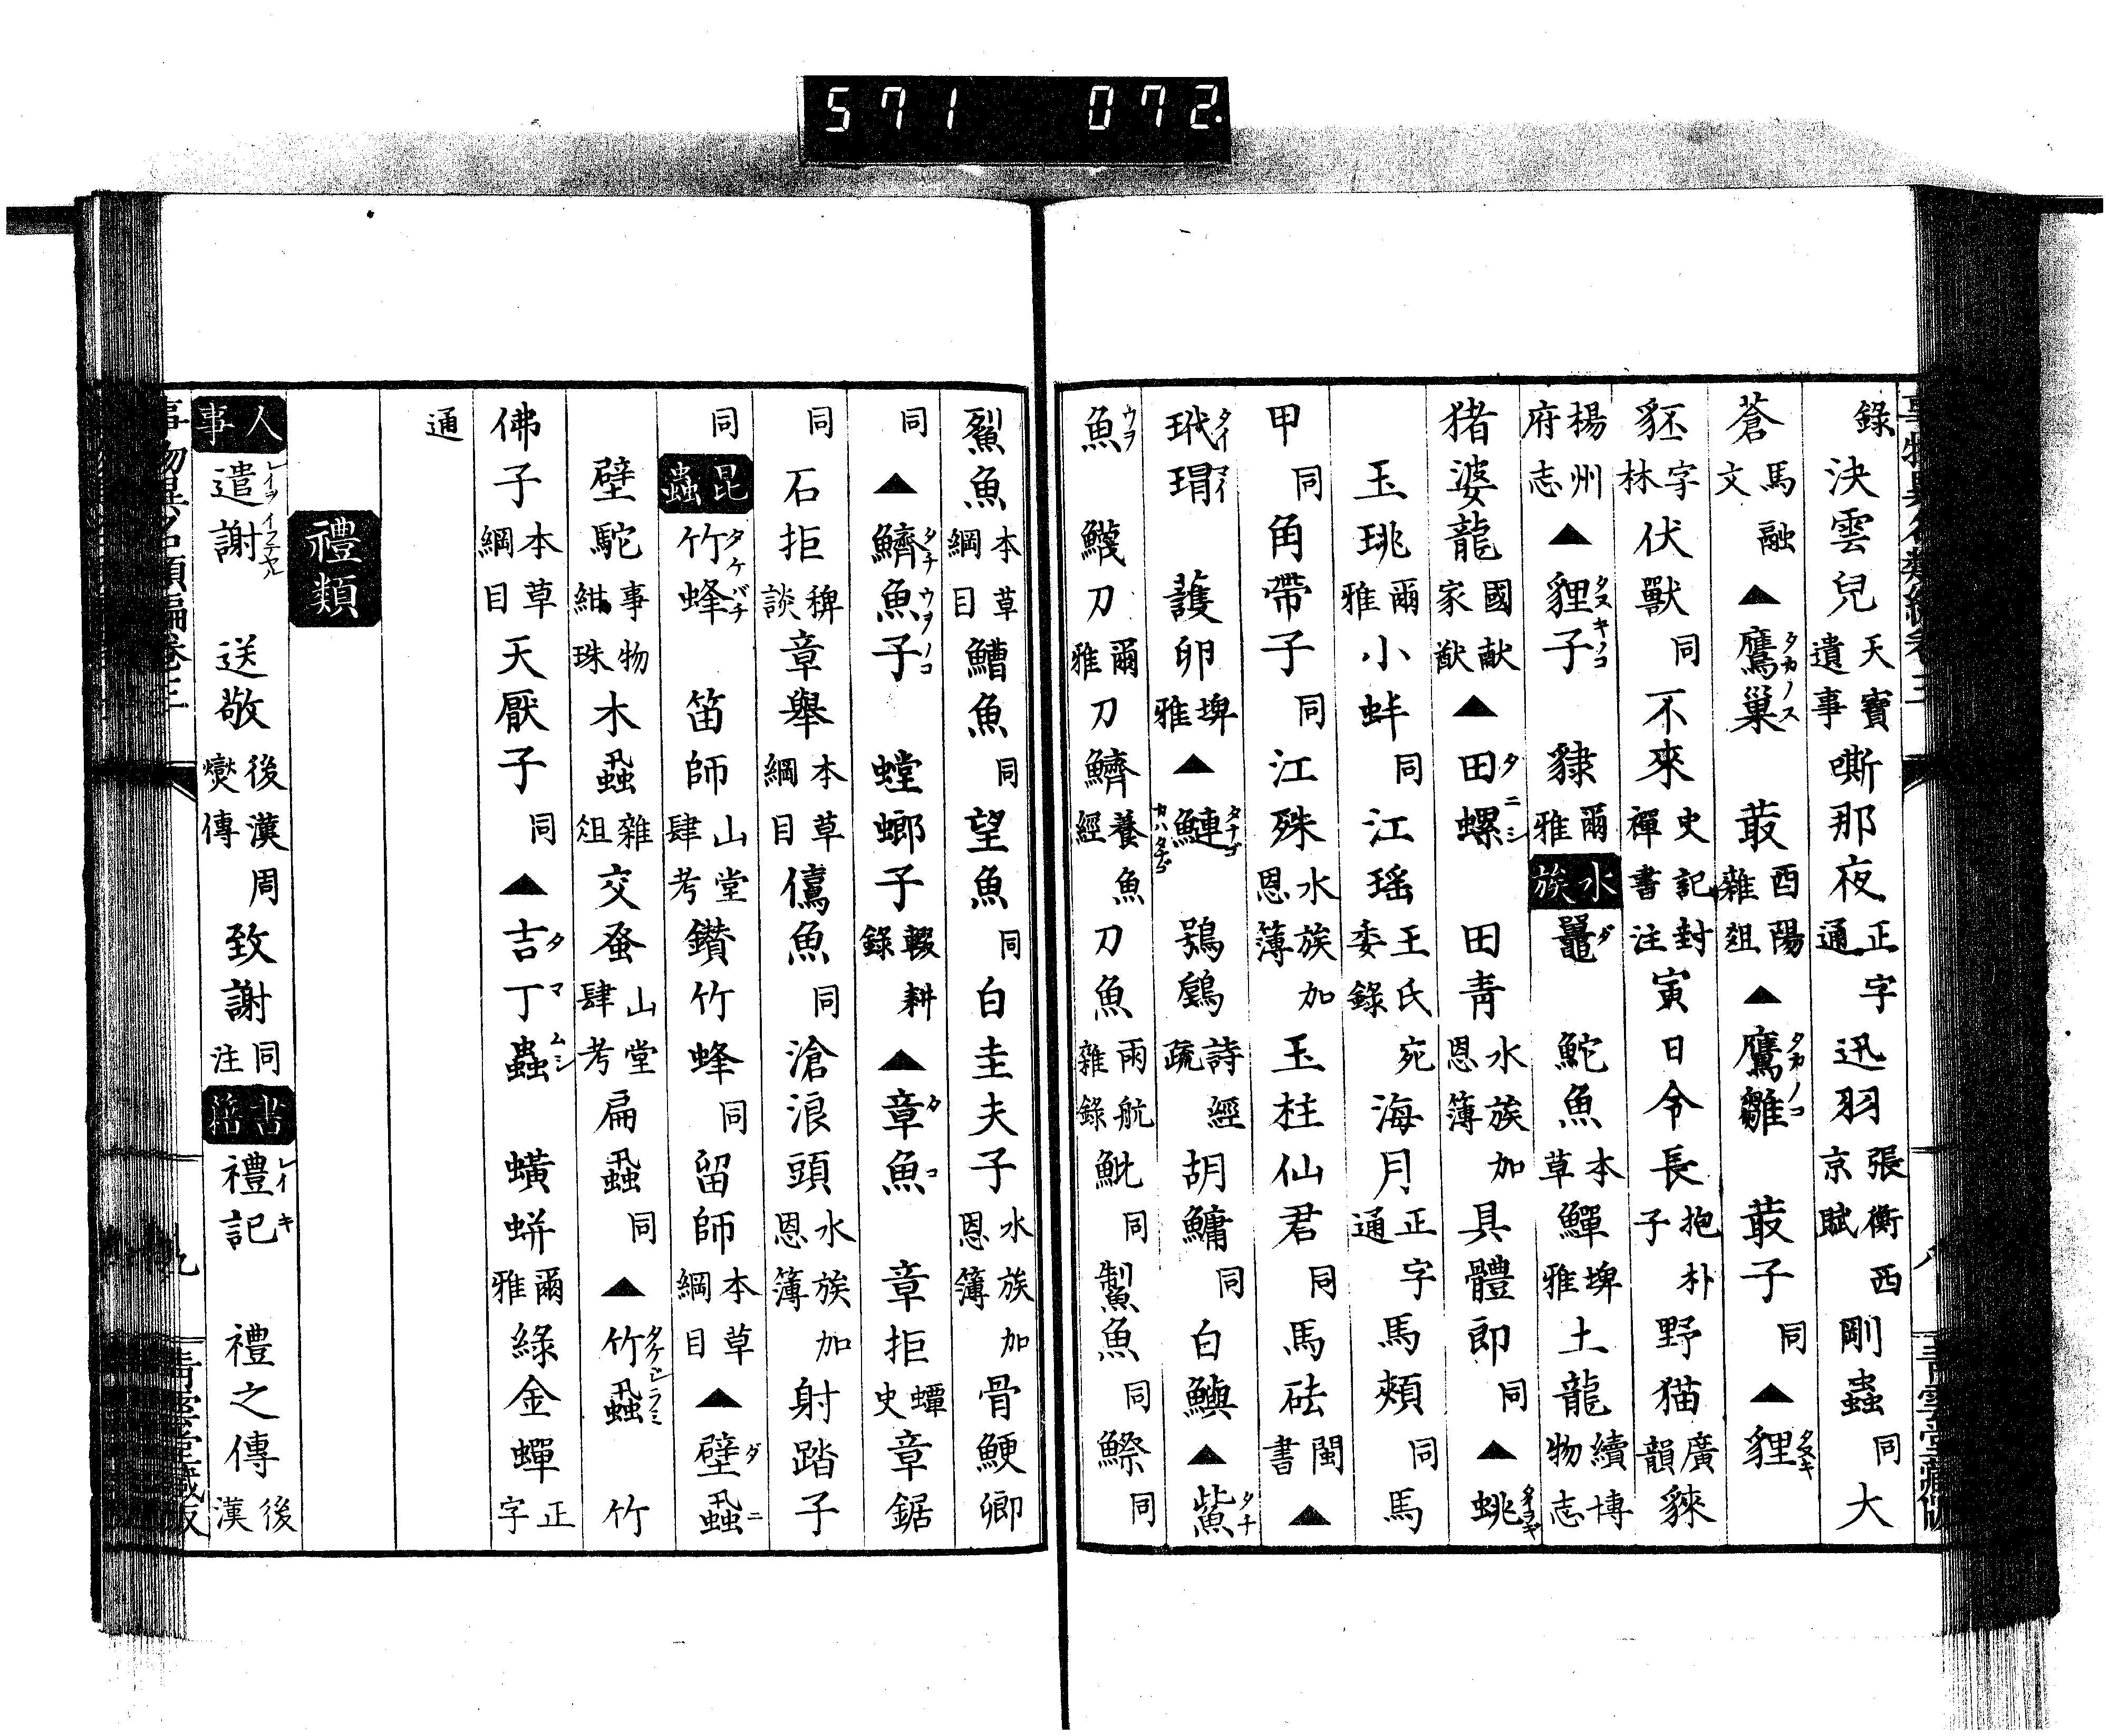 571 072.
錄 決雲兒 天寶遺事 嘶那夜 正字通 迅羽 張衡西京賦 剛蟲 同 大
蒼 馬融文 ▲鷹巢 タカノス 菆 酉陽雜爼 ▲鷹雛 タカノコ 菆子 同 ▲貍 タヌキ
豾 字林 伏獸 同 不來 史記封禪書注 寅日令長 抱朴子 野猫 廣韻 貅
楊州府志 ▲貍子 タヌキノコ 貄 爾雅 水族 鼉 ダ 鮀魚 本草 鱓 埤雅 土龍 續博物志
猪婆龍 國献家猷 ▲田螺 タニシ 田靑 水族加恩簿 具體郎 同 ▲蛯 タイラギ
玉珧 爾雅 小蚌 同 江瑤 王氏宛委錄 海月 正字通 馬頰 同 馬
甲 同 角帶子 同 江殊 水族加恩簿 玉柱仙君 同 馬砝 閩書 ▲
玳瑁 タイマイ 護卵 埤雅 ▲鰱 タナゴ カハタナゴ 鶚鸕 詩經疏 胡鱅 同 白鱮 ▲鮆 タチ
魚 ウヲ 鱴刀 爾雅 刀鱭 養魚經 刀魚 雨航雜錄 魮 同 鮤魚 同 鰶 同
鮤魚 本草綱目 鰽魚 同 望魚 同 白圭夫子 水族加恩簿 骨鯁卿
同 ▲鱭魚子 タチウヲノコ 螳螂子 輟耕錄 ▲章魚 タコ 章拒 蟫史 章鋸
同 石拒 稗談 章舉 本草綱目 僖魚 同 滄浪頭 水族加恩簿 射踏子
同 昆蟲 竹蜂 タケバチ 笛師 山堂肆考 鑽竹蜂 同 留師 本草綱目 ▲壁蝨 ダニ
壁駝 事物紺珠 木蝨 雜爼 交蚤 山堂肆考 扁蝨 同 ▲竹蝨 タケシラミ 竹
佛子 本草綱目 天厭子 同 ▲吉丁蟲 タマムシ 蟥蛢 爾雅 綠金蟬 正字
通
禮類
人事 遣謝 レイヲイフテヤル 送敬 後漢周爕傳 致謝 同注 書籍 禮記 レイキ 禮之傳 後漢
事物異名類編卷三 九 靑雲堂藏版